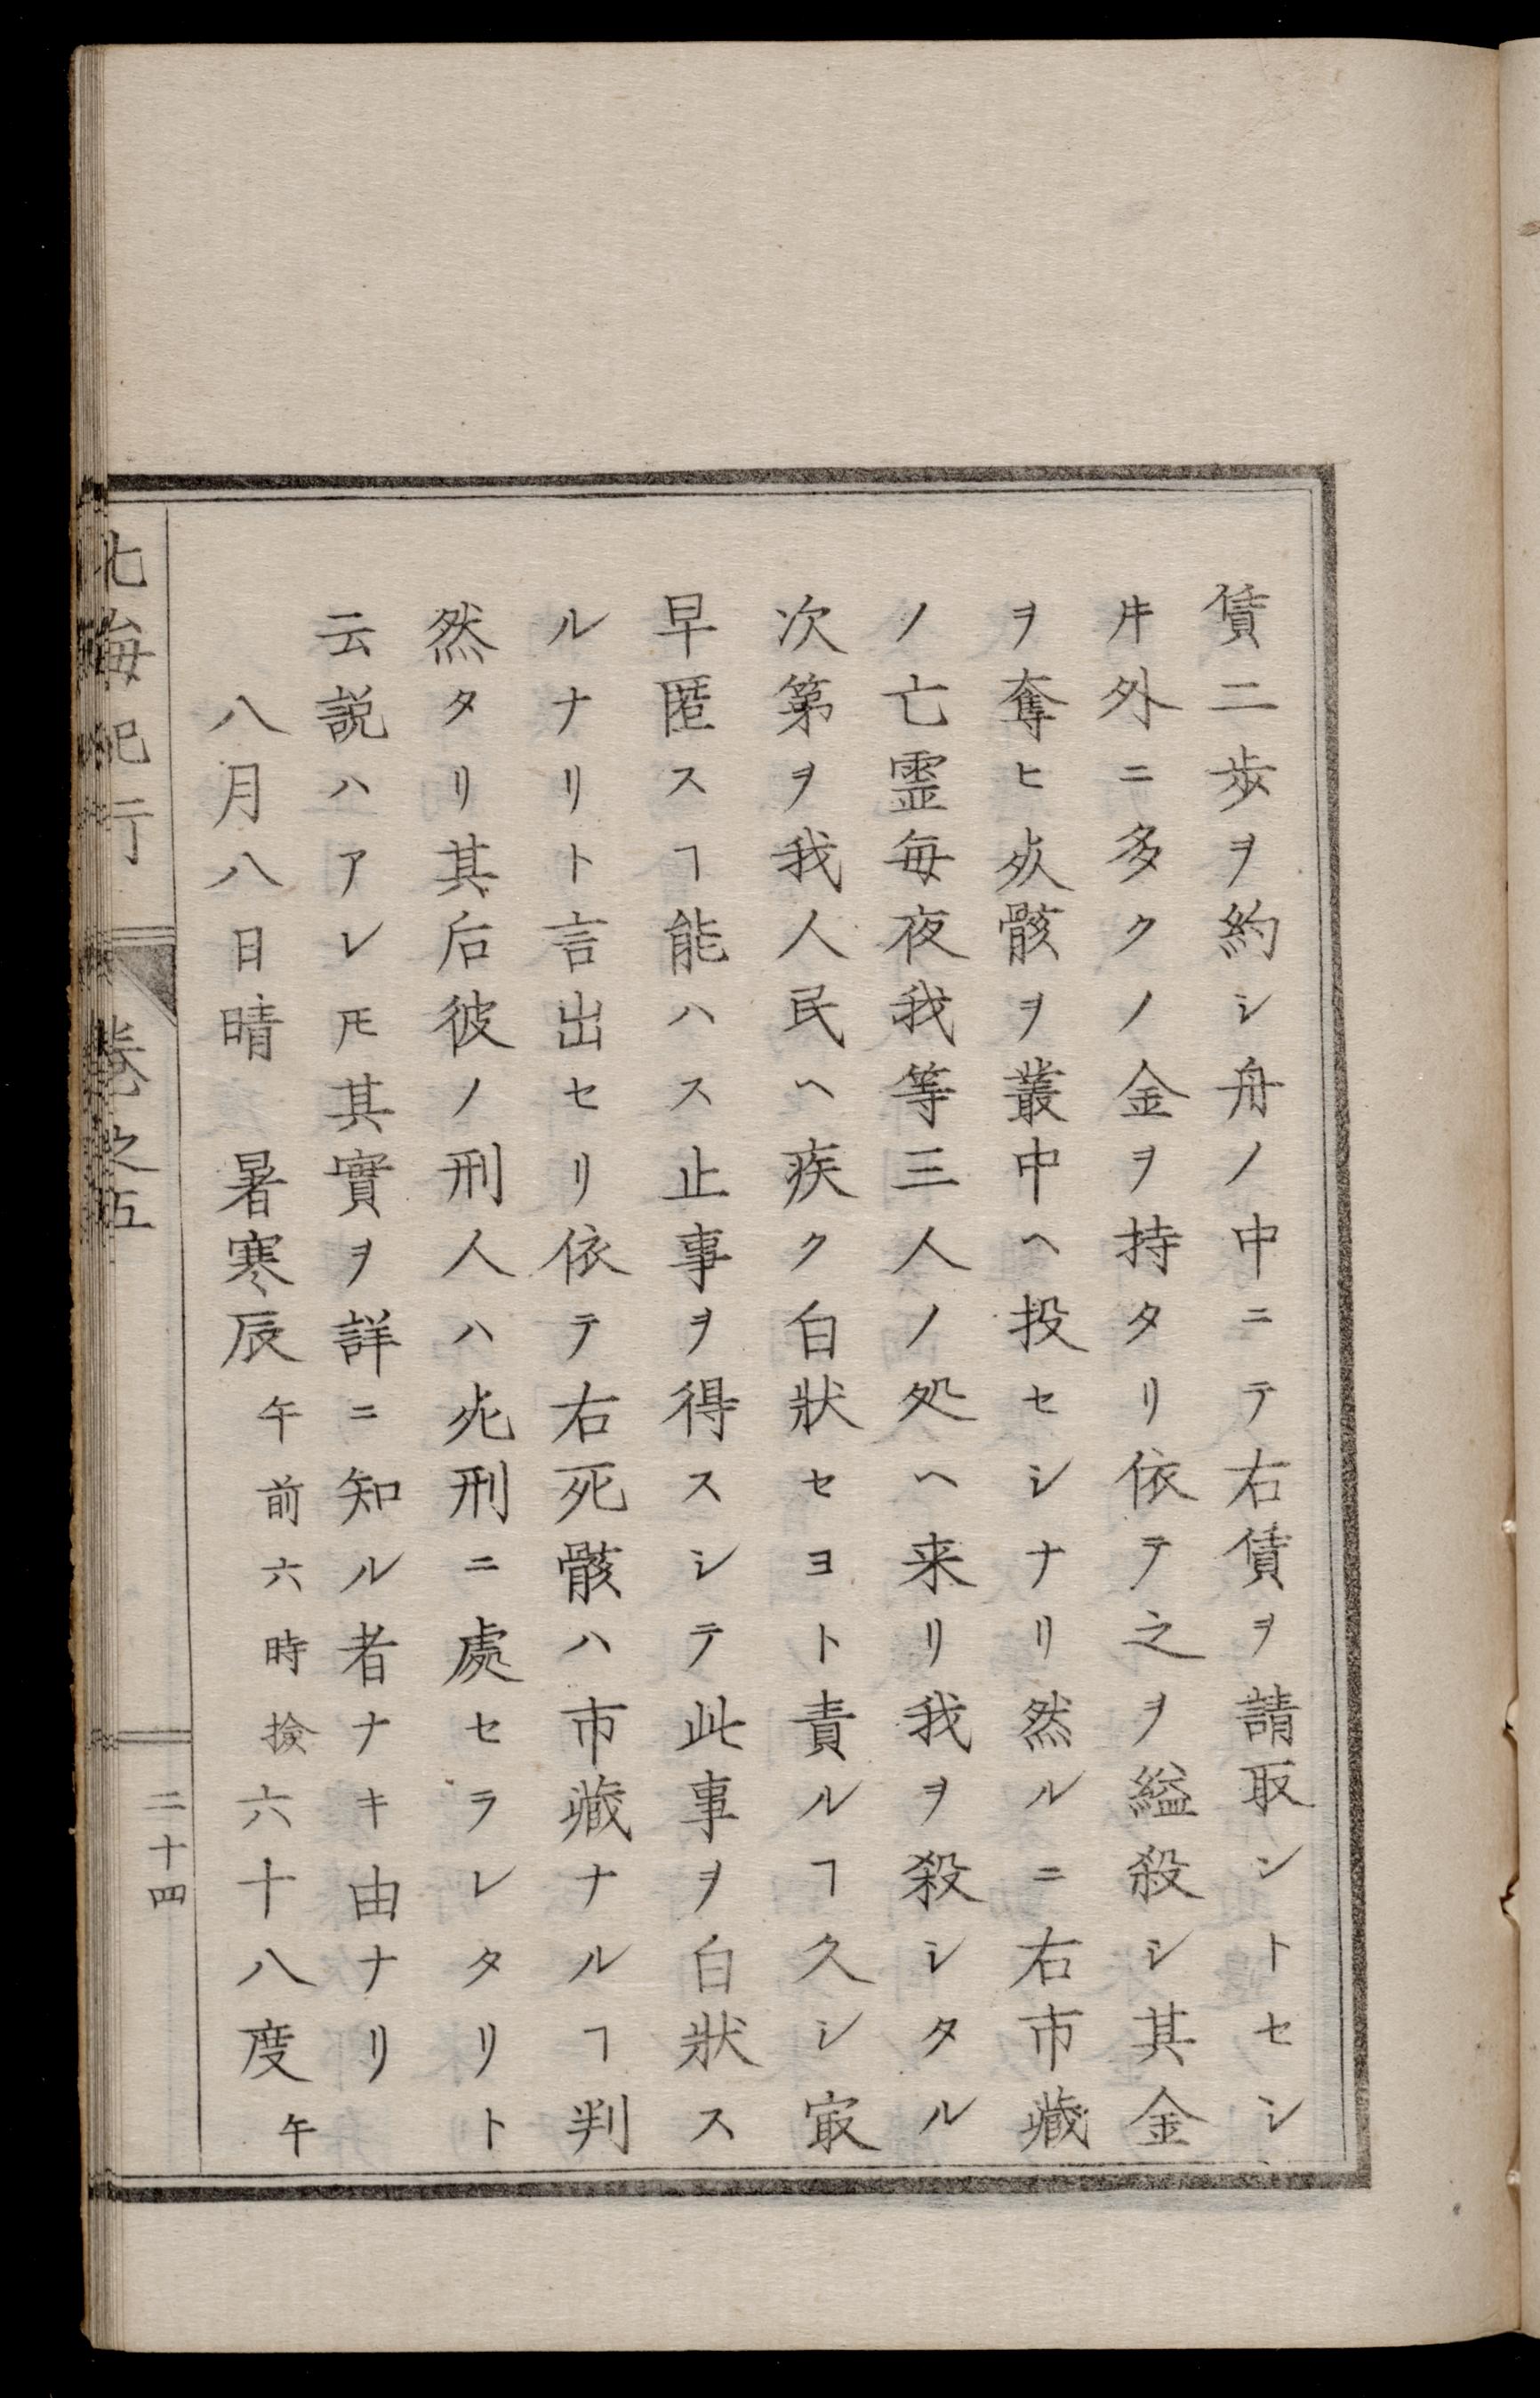 賃二歩ヲ約シ舟ノ中ニテ右賃ヲ請取ントセシ
井外ニ多クノ金ヲ持タリ依テ之ヲ縊殺シ其金
ヲ奪ヒ死骸ヲ叢中ヘ投セシナリ然ルニ右市藏
ノ亡霊毎夜我等三人ノ処ヘ来リ我ヲ殺シタル
次第ヲ我人民ヘ疾ク白狀セヨト責ルヿ久シ㝡
早匿スヿ能ハス止事ヲ得スシテ此事ヲ白狀ス
ルナリト言出セリ依テ右死骸ハ市藏ナルヿ判
然タリ其后彼ノ刑人ハ死刑ニ處セラレタリト
云説ハアレ𪜈其實ヲ詳ニ知ル者ナキ由ナリ
八月八日晴 暑寒辰午前六時撿六十八度午
北海紀行 卷之五 二十四